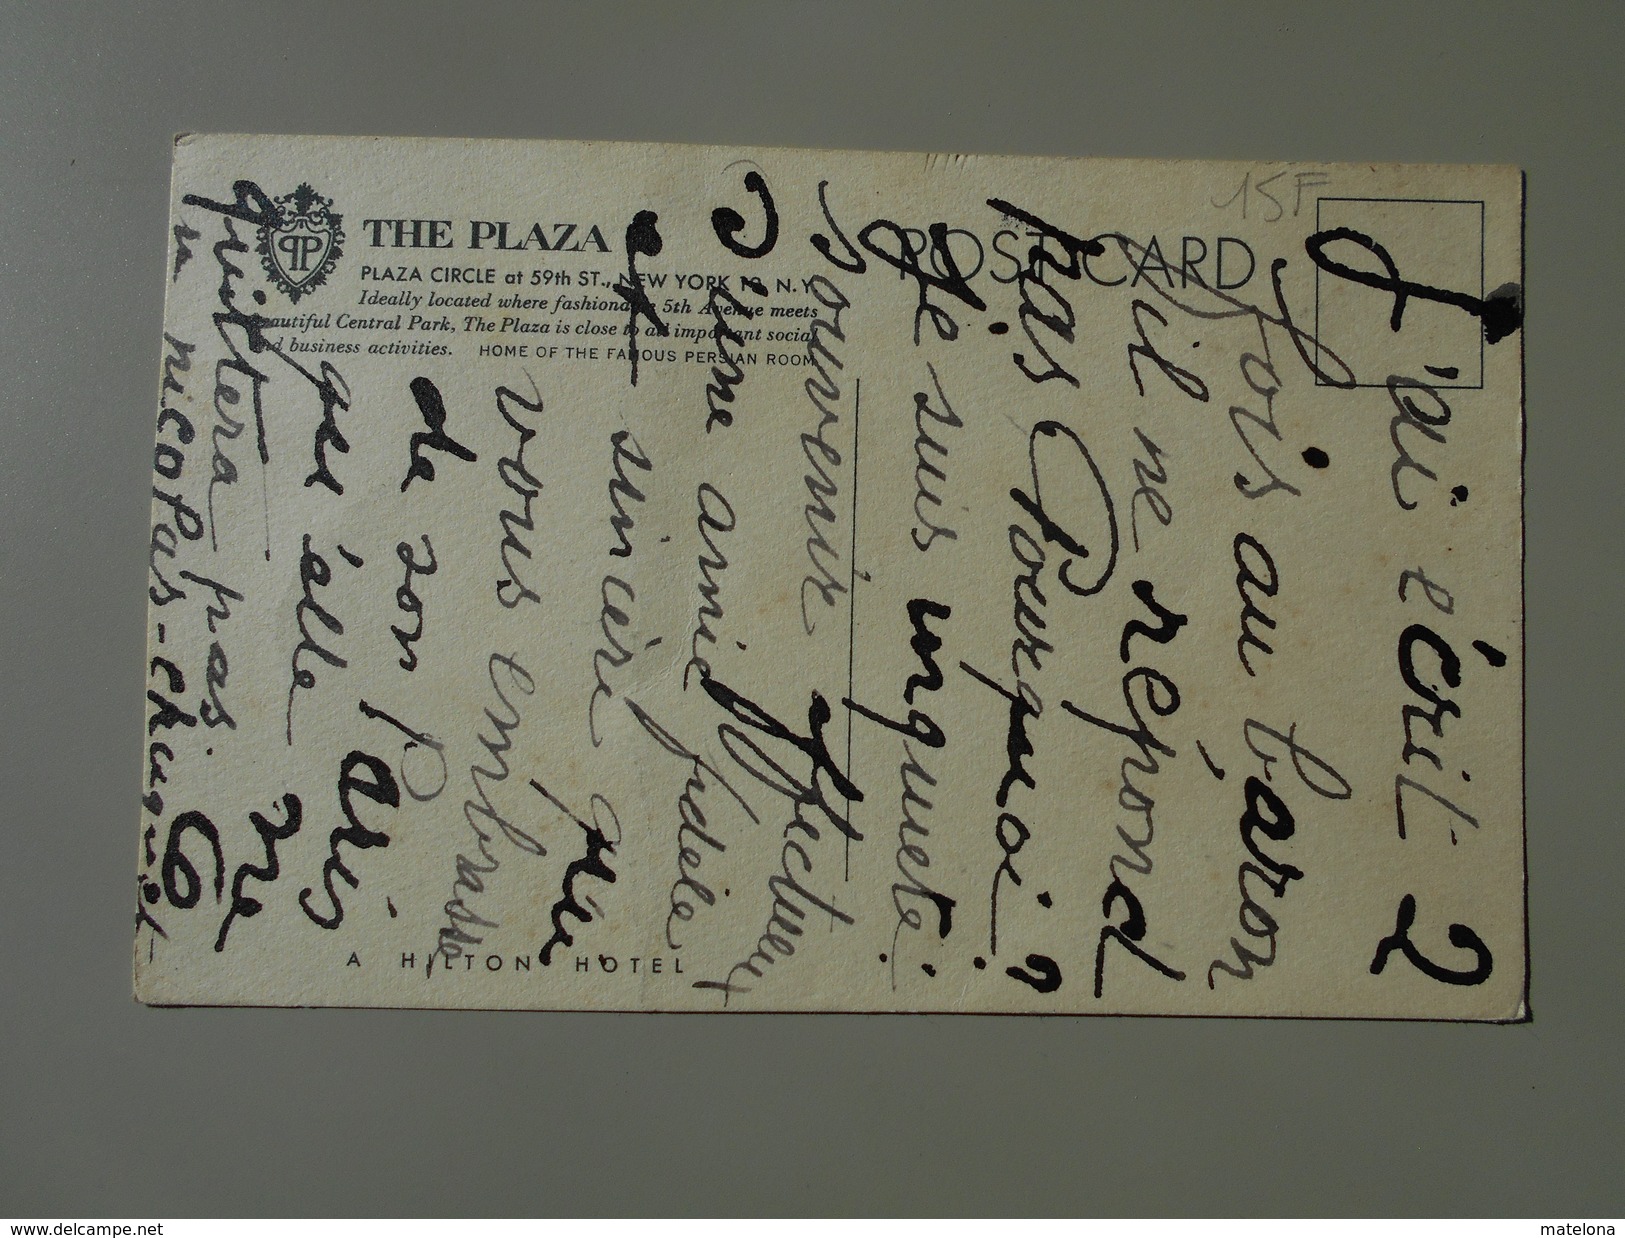 15F
THE PLAZA
POST CARD
PLAZA CIRCLE at 59th ST., NEW YORK 19, N.Y.
Ideally located where fashionable 5th Avenue meets
beautiful Central Park, The Plaza is close to all important social
and business activities. HOME OF THE FAMOUS PERSIAN ROOM
A HILTON HOTEL
J'ai écrit 2
fois au baron
il ne répond
pas Pourquoi?
Je suis inquiète.
Souvenir affectueux
D'une amie fidèle
et sincère que
vous embrasse
de son Paris
que elle ne
quittera pas.
delcampe.net
matelona